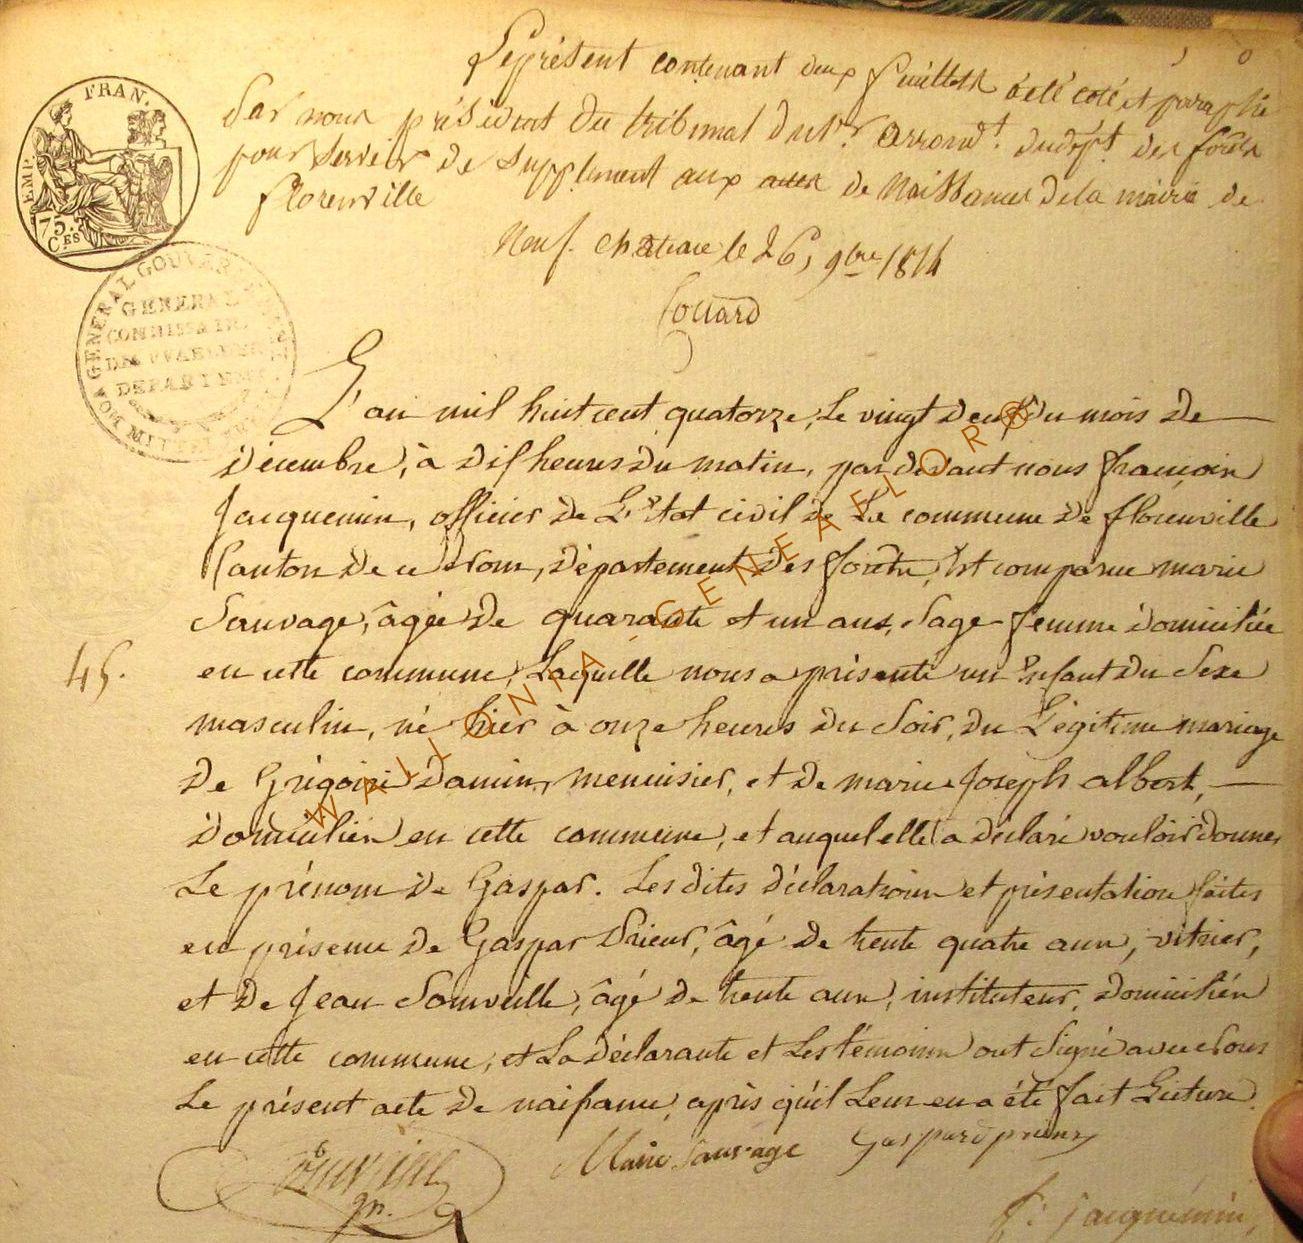 Le présent contenant deux feuillets a été coté et paraphé
Par nous président du tribunal du 1er. arrondt. du dépt. des forêts
pour servir de supplément aux actes de Naissances de la mairie de
florenville
Neuf-château le 26, 9bre 1814
Collard
FRAN.
EMP.
75.
C.ES
GENERAL GOUVER
GENERAL
COMMISSAIR
DEPARTEM
L'an mil huit cent quatorze, le vingt deux du mois de
décembre, à dix heures du matin, par devant nous françois
Jacquemin, officier de L'état civil de La commune de florenville
Canton de ce nom, département des forêts, Est comparue marie
Sauvage, âgée de quarante et un ans, Sage-femme domiciliée
en cette commune, Laquelle nous a présenté un Enfant du Sexe
45.
masculin, né hier à onze heures du Soir, du Légitime mariage
de Grégoire Damin, menuisier, et de marie Joseph albert,
domiciliés en cette commune, et auquel elle a déclaré vouloir donner
Le prénom de Gaspar. Les dites déclarations et présentation faites
en présence de Gaspar Prieur, âgé de trente quatre ans, vitrier,
et de Jean Somveille, âgé de trente ans, instituteur, domiciliés
en cette commune, et La déclarante et Les témoins ont Signé avec Nous
Le présent acte de naissance, après qu'il Leur en a été fait Lecture.
Marie Sauvage Gaspard prieur
f: jacquemin,
WALLONIA GENEAFLOR®